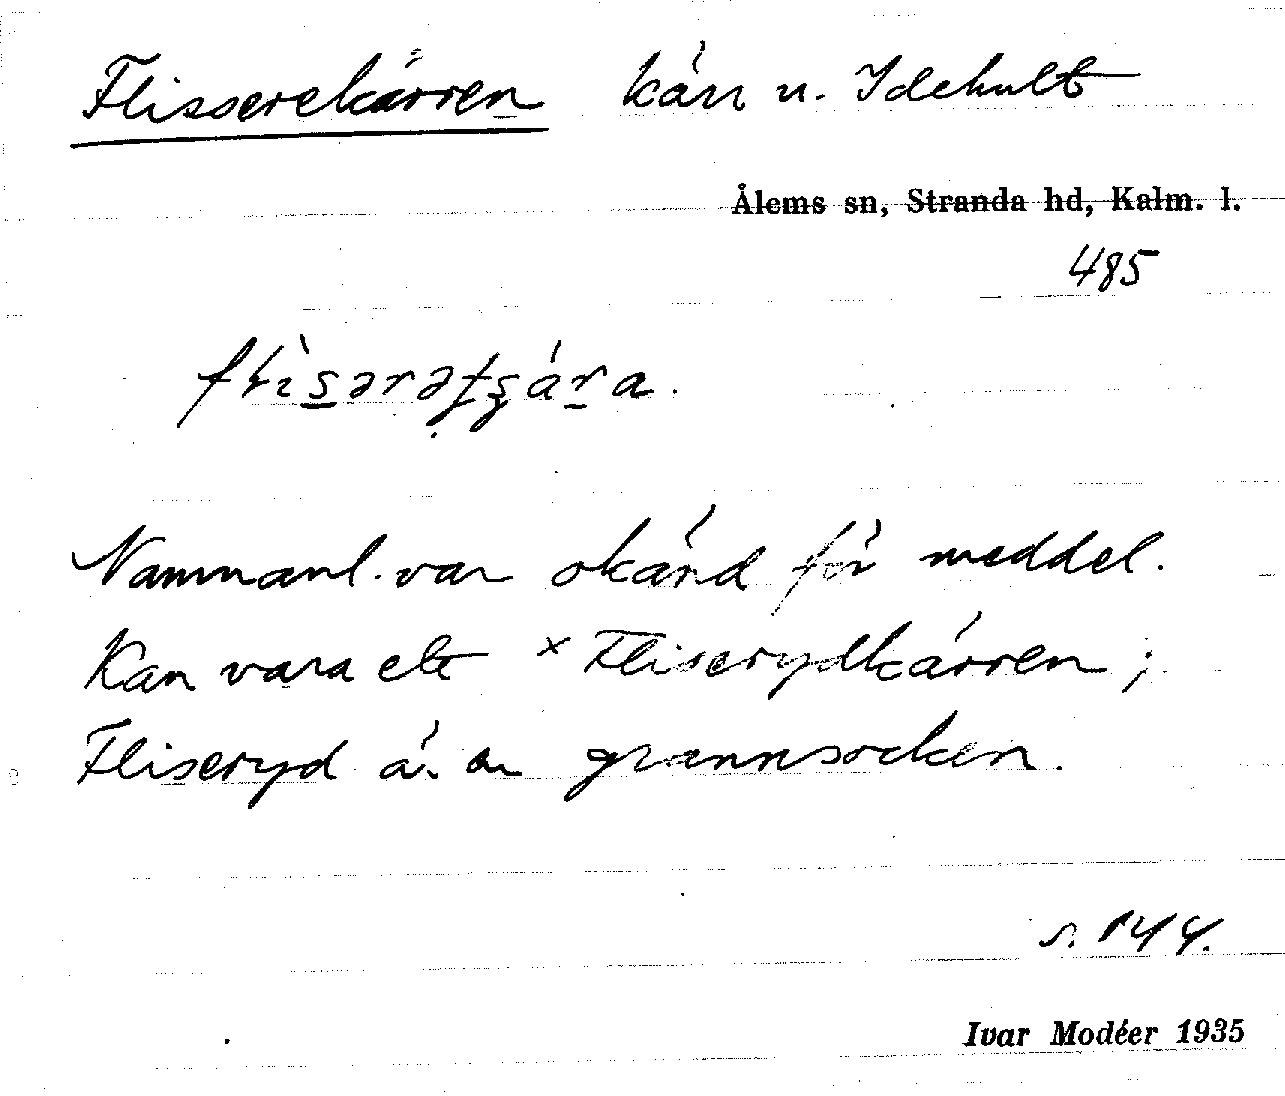 Flisserekärren kärr u. Idehult
Ålems sn, Stranda hd, Kalm. l.
485
Namnanl. var okänd för meddel.
Kan vara ett × Fliserydkärren ;
Fliseryd är en grannsocken.
s. 144.
Ivar Modéer 1935